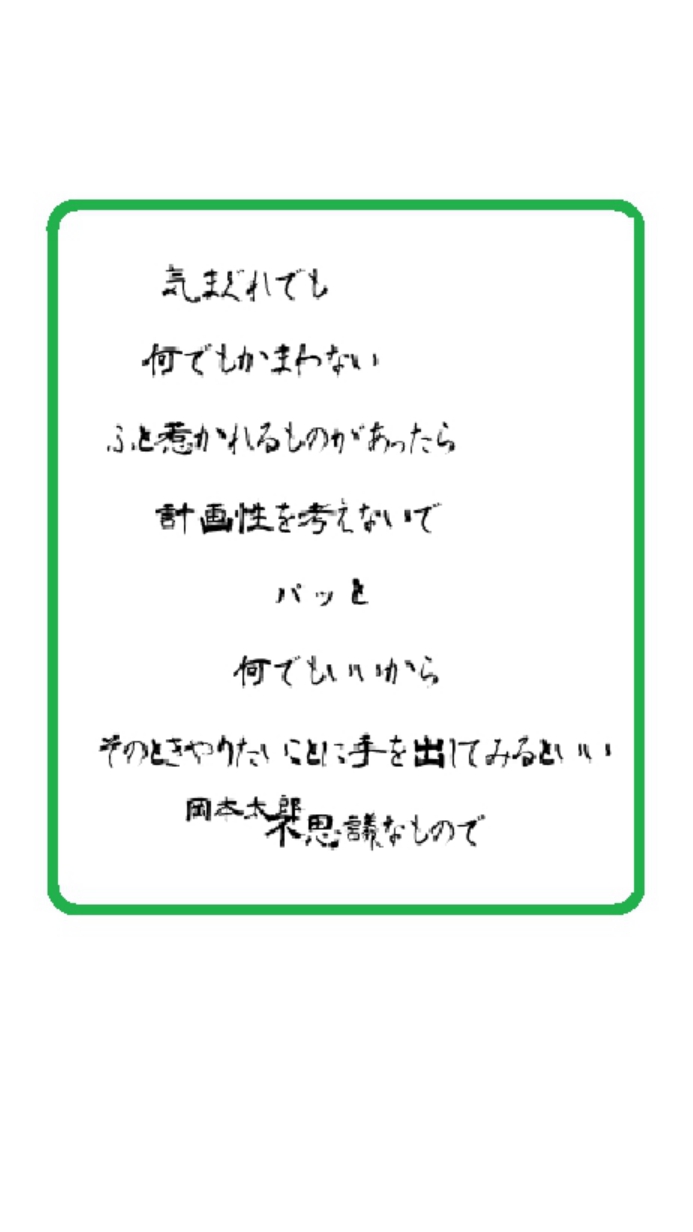 気まぐれでも
何でもかまわない
ふと惹かれるものがあったら
計画性を考えないで
パッと
何でもいいから
そのときやりたいことに手を出してみるといい
岡本太郎
不思議なもので